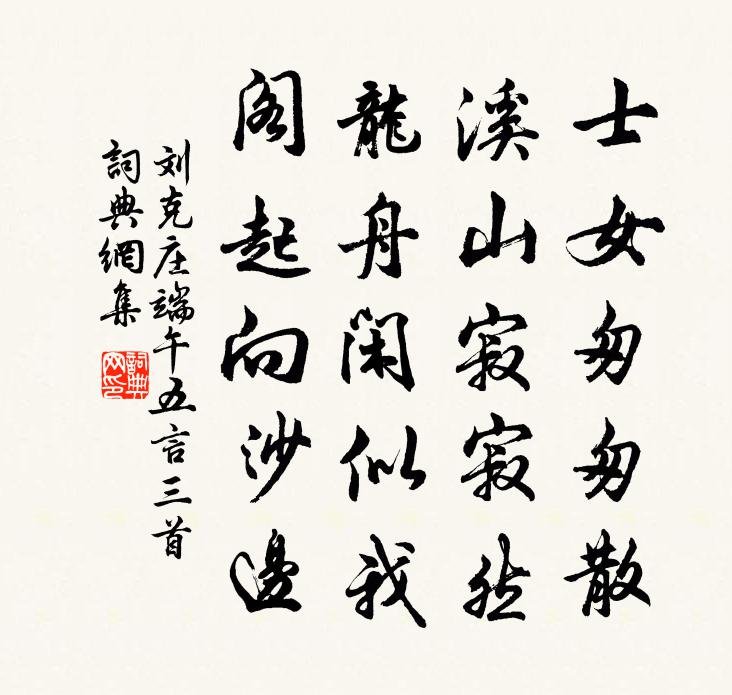 士女匆匆散
溪山寂寂然
龍舟閑似我
閣起向沙邊
刘克庄端午五言三首
詞典網集
詞典網印